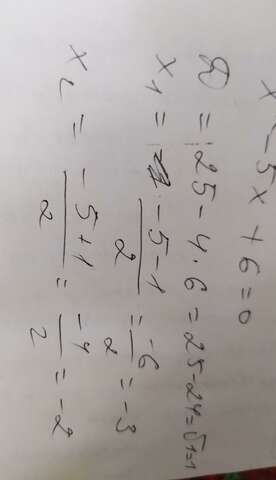 x² - 5x + 6 = 0
D = 25 - 4·6 = 25 - 24 = √1 = 1
x1 = -5-1/2 = -6/2 = -3
x2 = -5+1/2 = -4/2 = -2